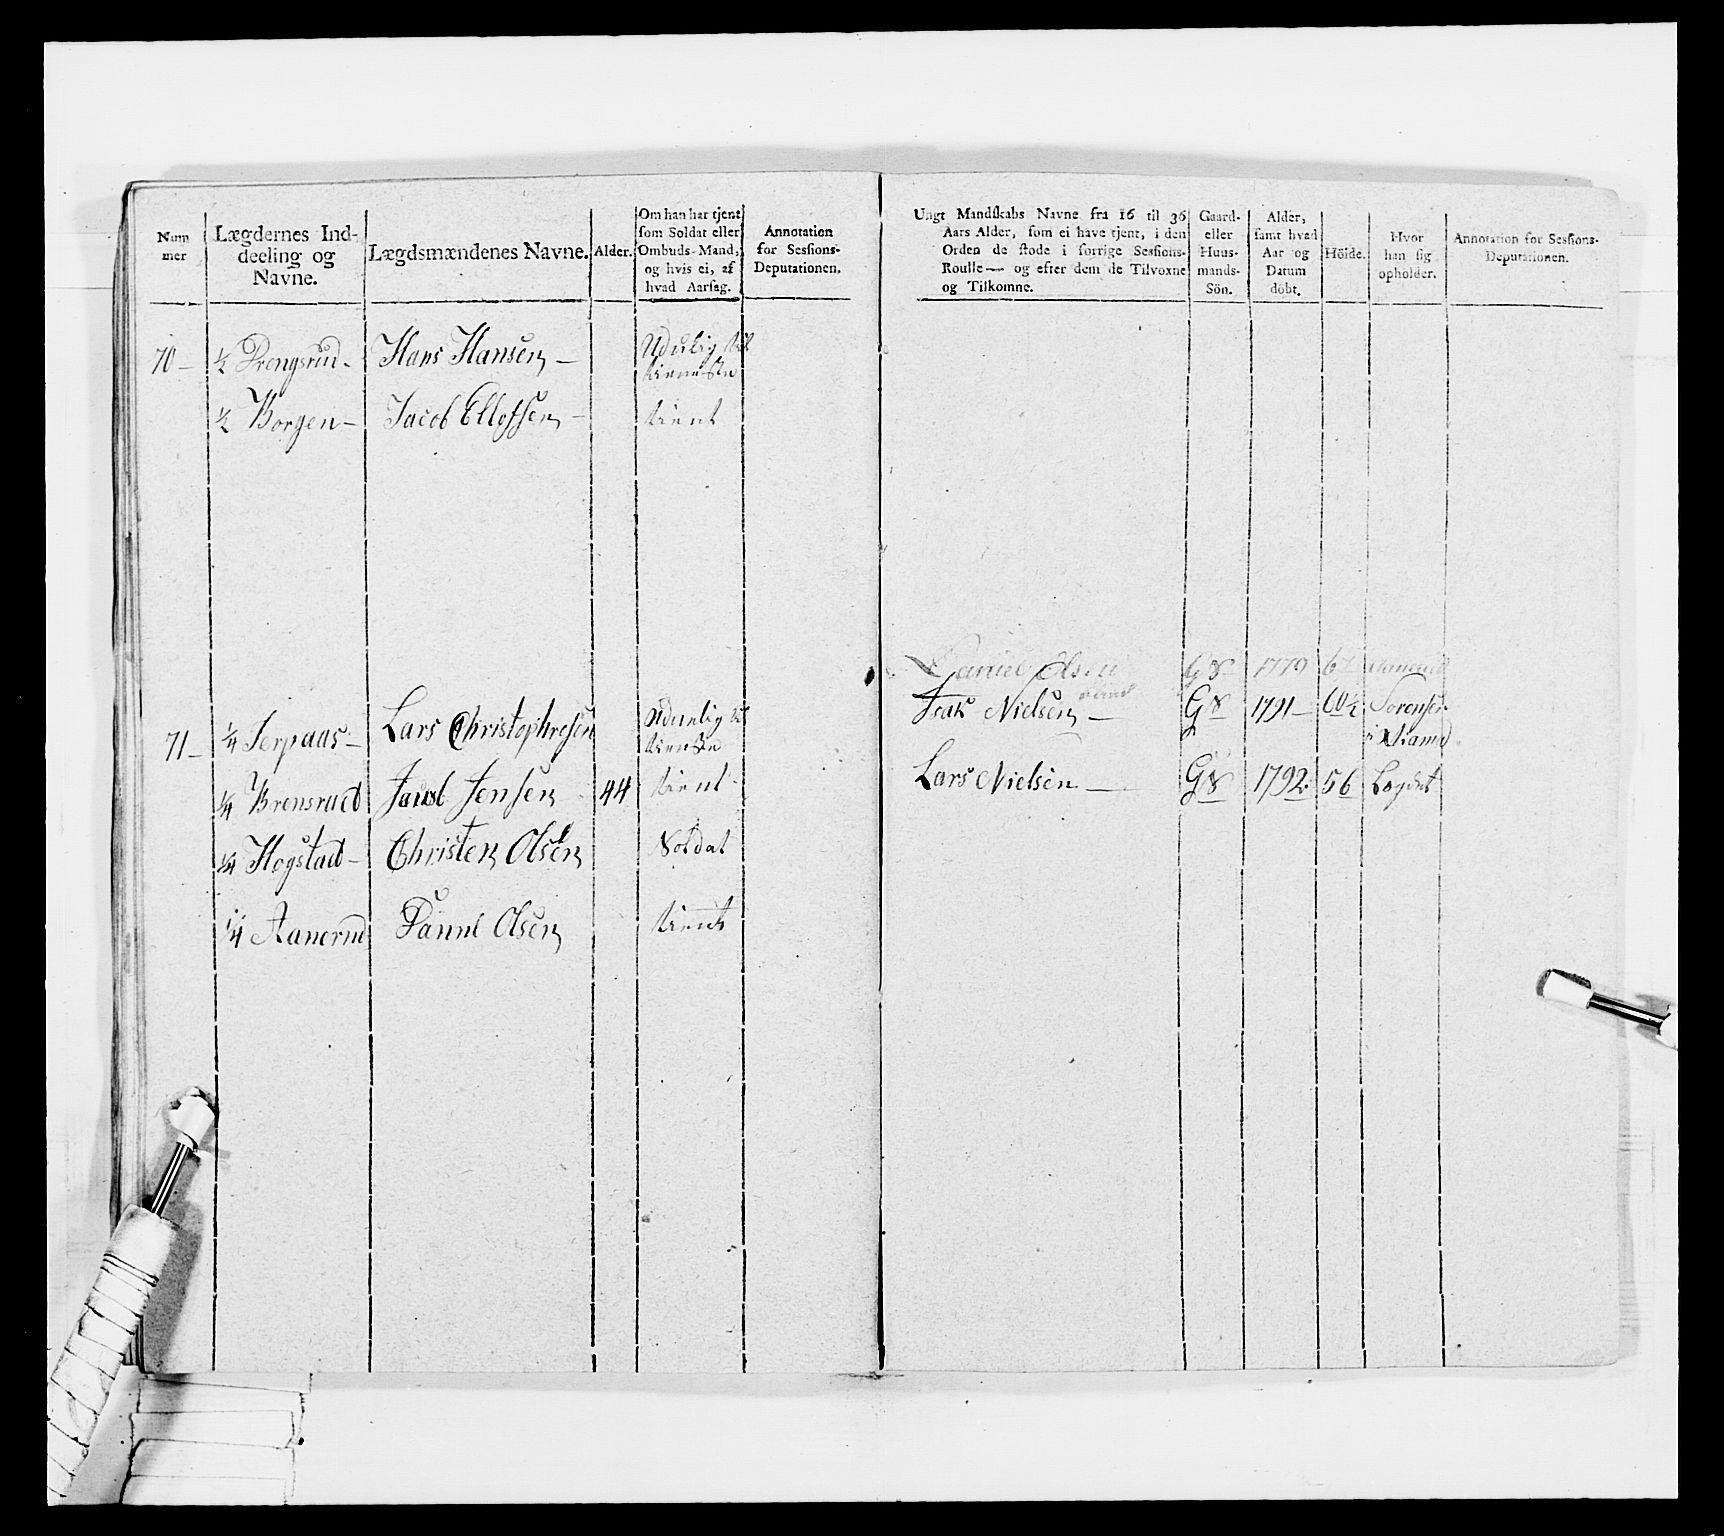 Num
mer
Lægdernes Ind-
deeling og
Navne.
Lægdsmændenes Navne.
Alder.
Om han har tjent
som Soldat eller
Ombuds-Mand,
og hvis ei, af
hvad Aarsag.
Annotation
for Sessions-
Deputationen.
Ungt Mandskabs Navne fra 16 til 36
Aars Alder, som ei have tjent, i den
Orden de stode i forrige Sessions-
Roulle — og efter dem de Tilvoxne
og Tilkomne.
Gaard-
eller
Huus-
mands-
Sön.
Alder,
samt hvad
Aar og
Datum
döbt.
Höide.
Hvor
han sig
opholder.
Annotation for Sessions-
Deputationen.
70 — ½ Drengsrud - Hans Hansen — Udulig til
tieneste
½ Borgen — Jacob Ellefsen — tient
Daniel Olsen GS 1770
Isak Nielsen — GS 1791 — 60½ Sorensen
71 — ¼ Serpaas — Lars Christophresen Udulig til
tieneste
Lars Nielsen — GS 1792 56 Lægdet
¼ Brensrued Jacob Jensen 44 tient
¼ Hogstad — Christen Olsen Soldat
¼ Aanerud Daniel Olsen tient